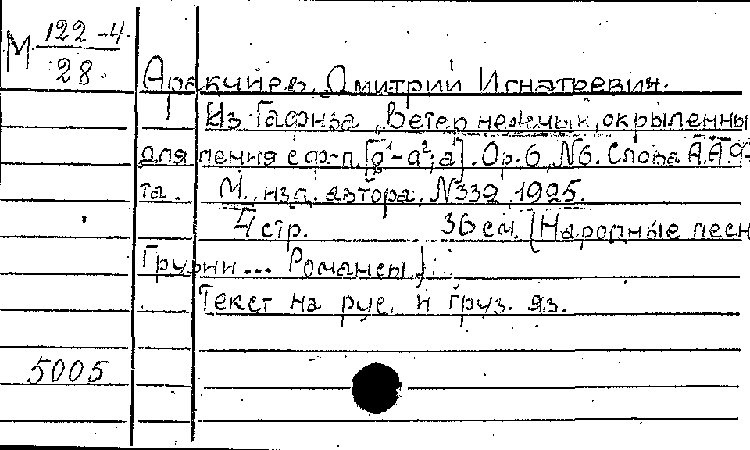 М 122-4
28.
Аракчиев, Дмитрий Игнатьевич.
Из Гафиза. "Ветер нежный, окрыленны
для пения с ф-п. [g¹-a²; a¹]. Ор. 6, N6. Слова А.А. Фе
та. М., изд. автора, N339, 1925.
4 стр. 36 см. (Народные песн
Грузии... Романсы).
Текст на рус. и груз. яз.
5005